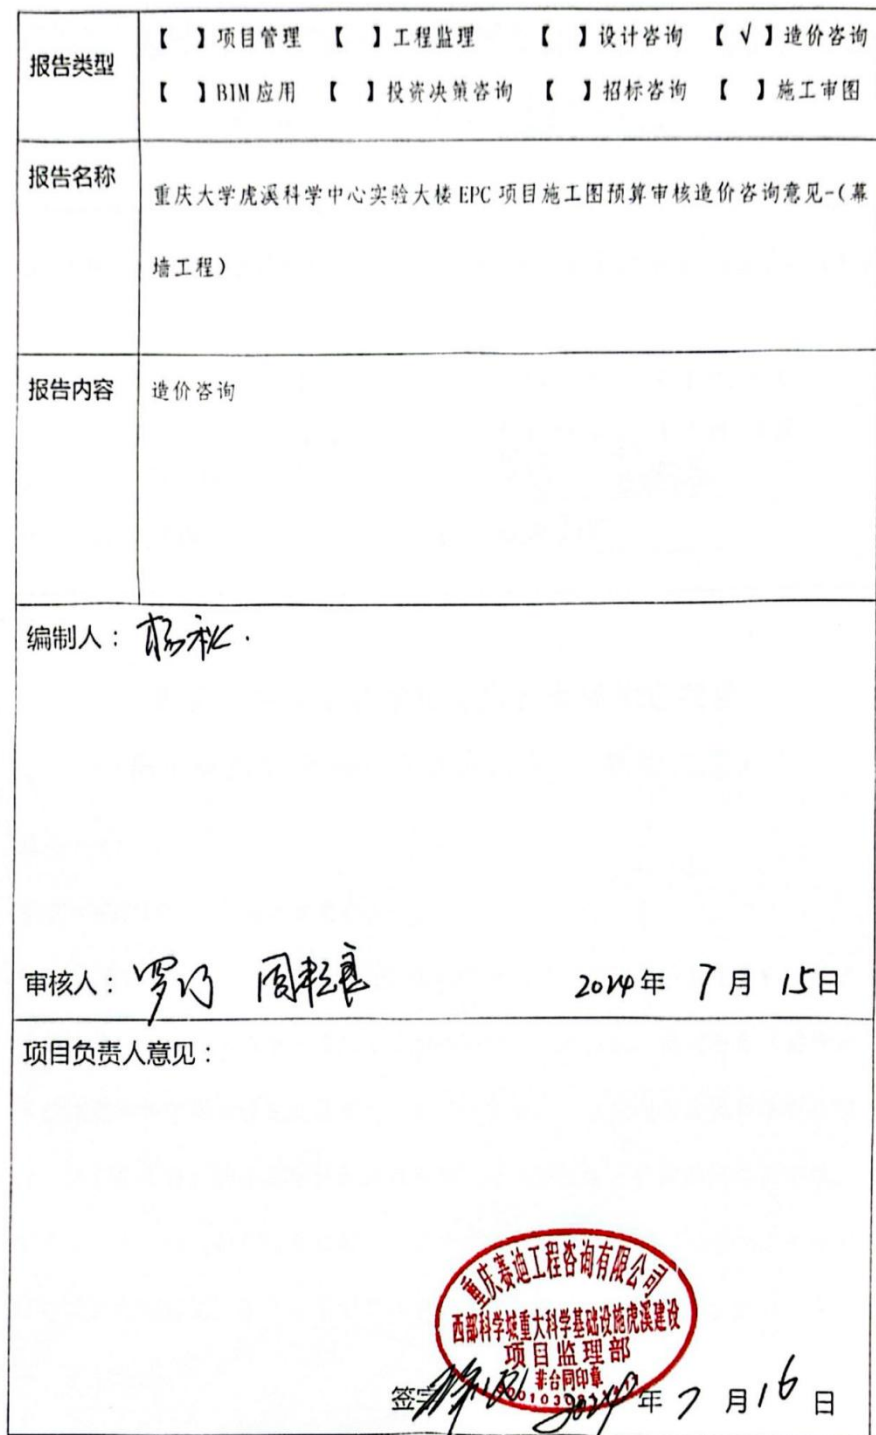 报告类型
【 】项目管理 【 】工程监理 【 】设计咨询 【√】造价咨询
【 】BIM应用 【 】投资决策咨询 【 】招标咨询 【 】施工审图
报告名称
重庆大学虎溪科学中心实验大楼EPC项目施工图预算审核造价咨询意见-(幕
墙工程)
报告内容
造价咨询
编制人：杨秋
审核人：
2024年 7月 15日
项目负责人意见：
重庆赛迪工程咨询有限公司
西部科学城重大科学基础设施虎溪建设
项目监理部
非合同印章
签字
2024年 7月16日